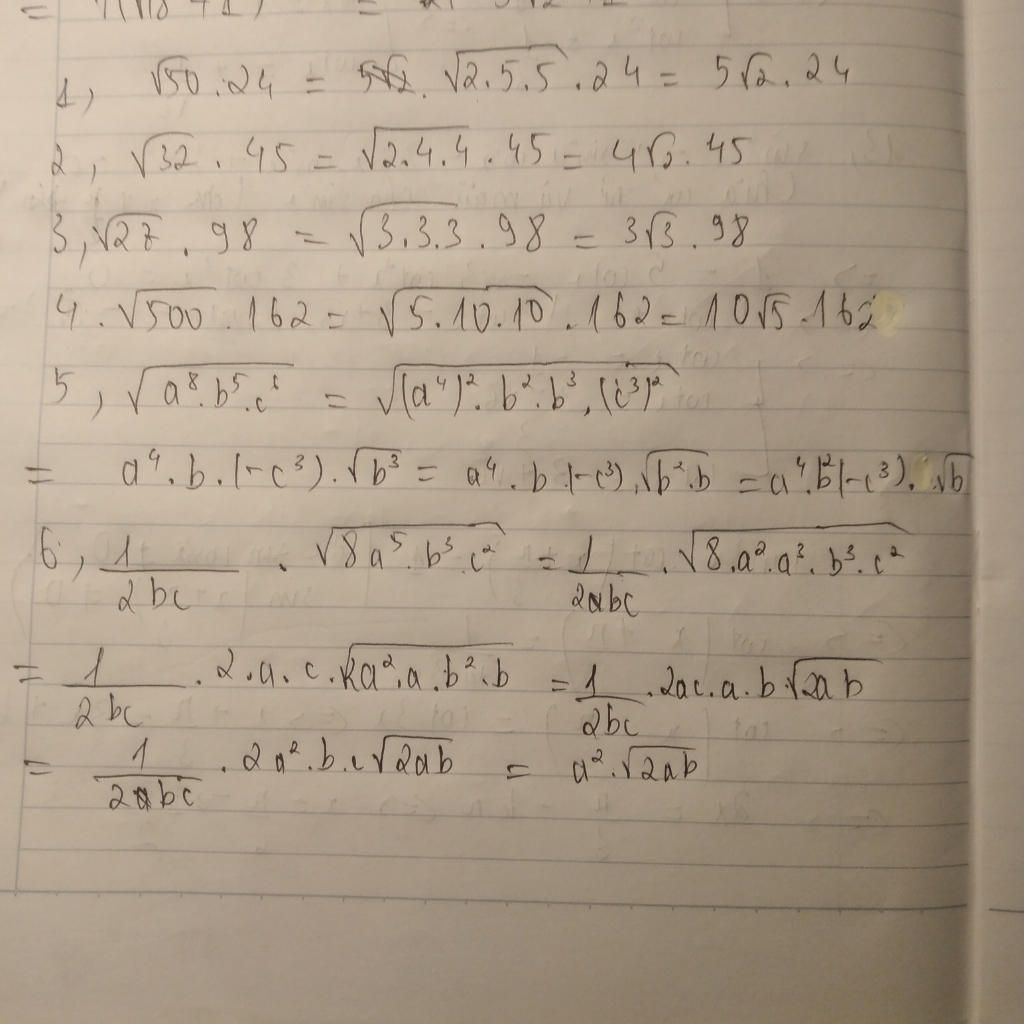 1, √50 . 24 = √2.5.5 . 24 = 5√2 . 24
2, √32 . 45 = √2.4.4 . 45 = 4√2 . 45
3, √27 . 98 = √3.3.3 . 98 = 3√3 . 98
4. √500 . 162 = √5.10.10 . 162 = 10√5 . 162
5, √a⁸.b⁵.c⁶ = √(a⁴)².b².b³.(c³)²
= a⁴.b.(-c³).√b³ = a⁴.b.(-c³).√b².b = a⁴.b²(-c³).√b
6, 1/2bc . √8a⁵.b³.c² = 1/2bc . √8.a².a³.b³.c²
= 1/2bc . 2.a.c.√2a².a.b².b = 1/2bc . 2ac.a.b.√2ab
= 1/2bc . 2a².b.c√2ab = a².√2ab